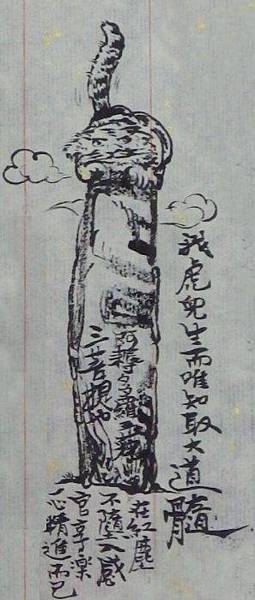 我虎兒生而唯知取大道髓
阿耨多羅三藐
三菩提也
在紅塵
不墮入感
官享樂
一心精進而已